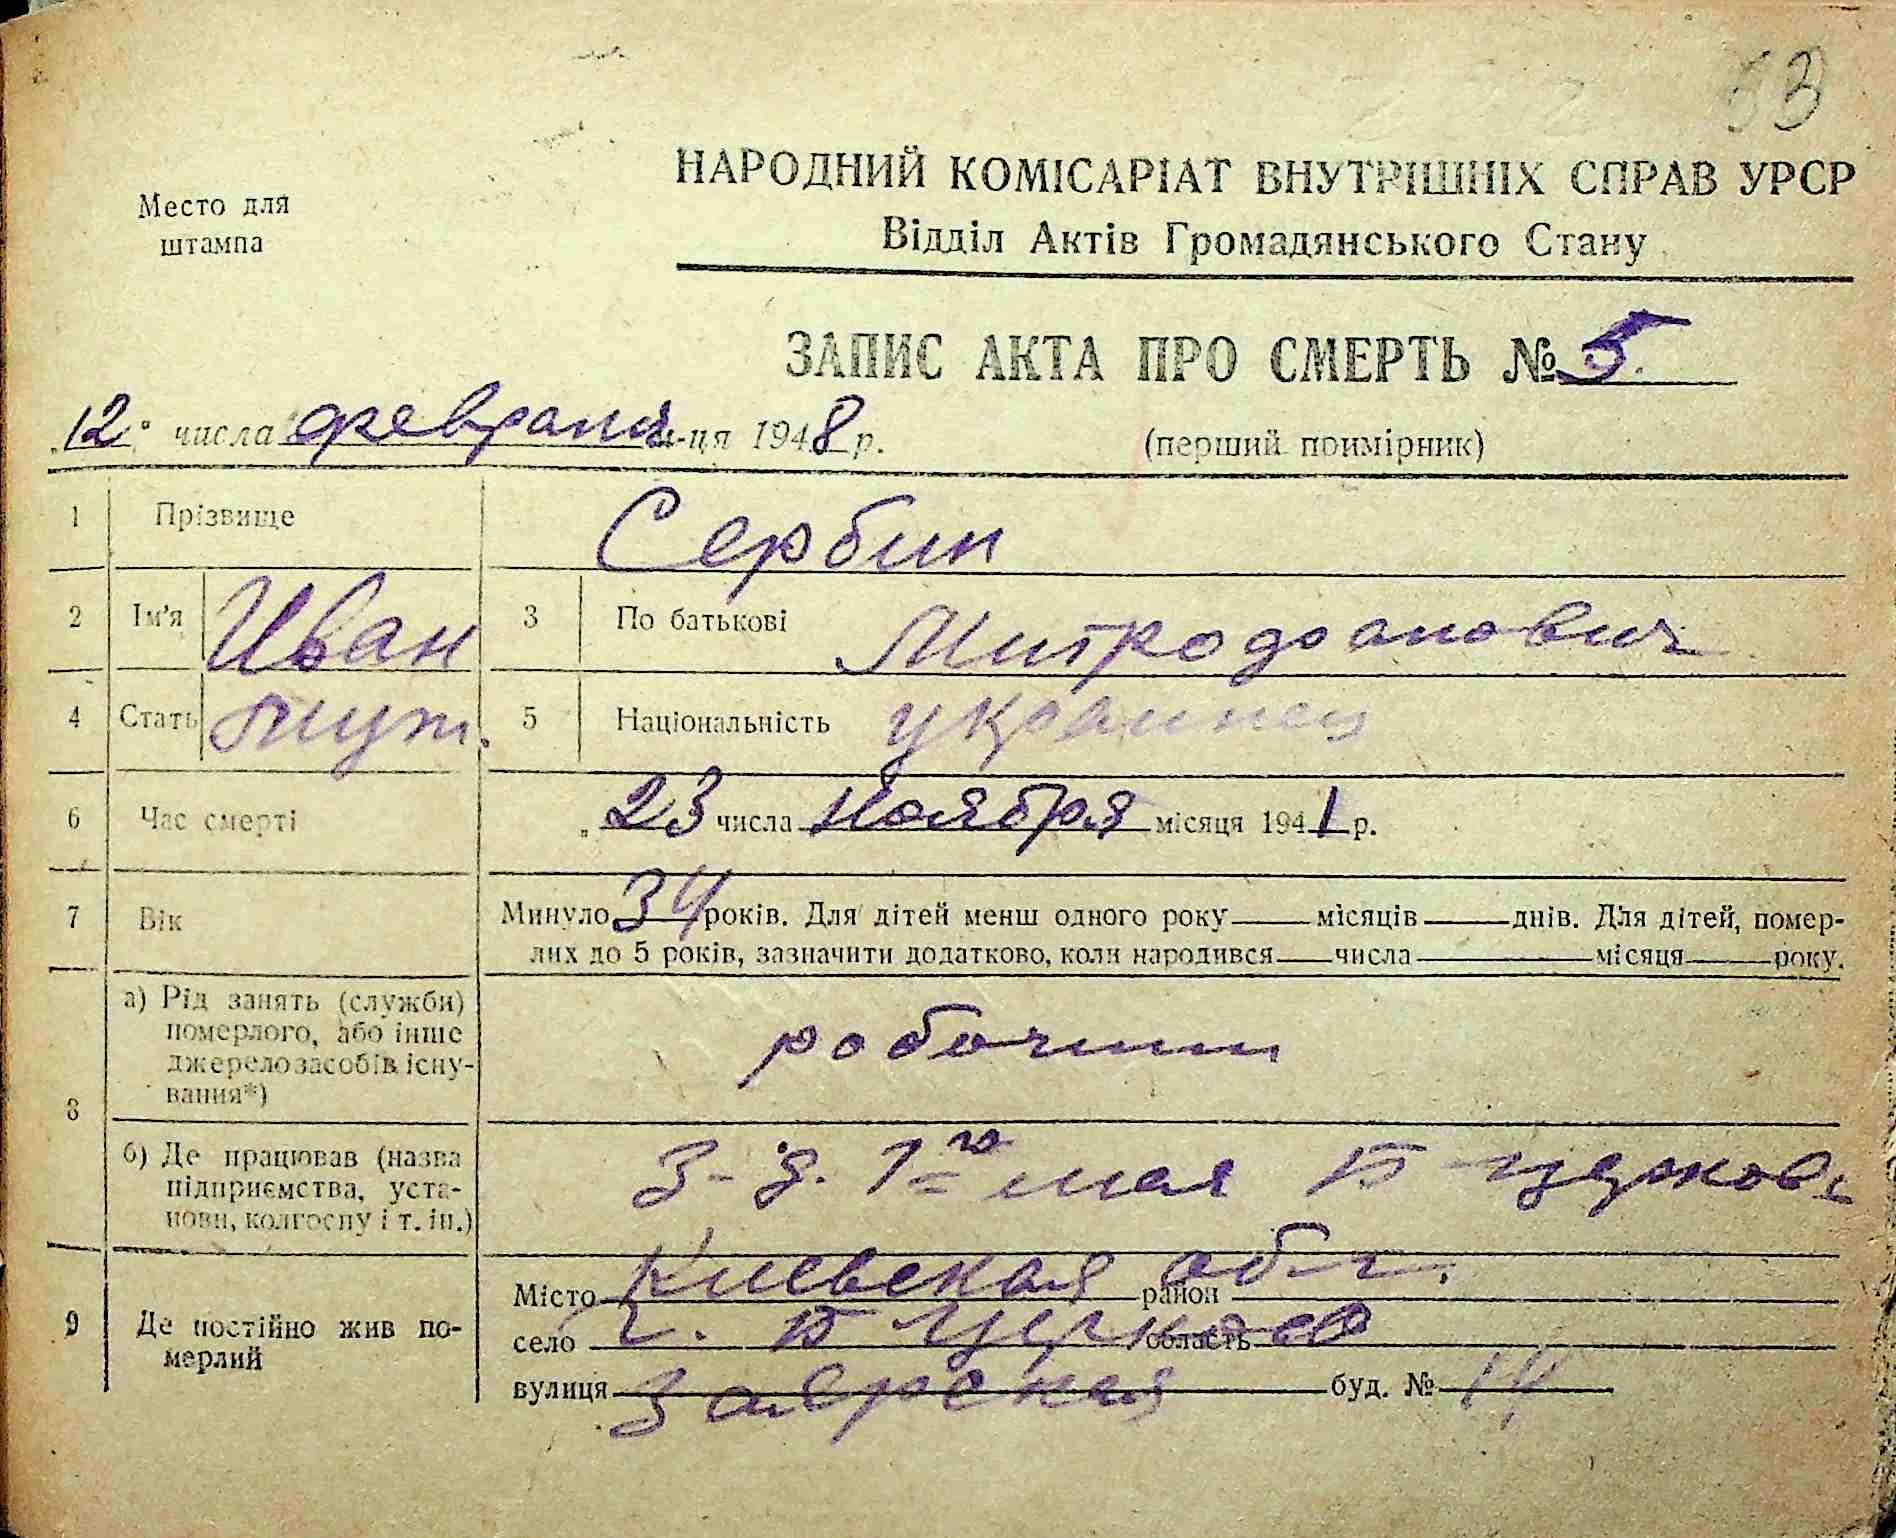 53
Место для
штампа
НАРОДНИЙ КОМІСАРІАТ ВНУТРІШНІХ СПРАВ УРСР
Відділ Актів Громадянського Стану
ЗАПИС АКТА ПРО СМЕРТЬ № 5.
"12" числа февраля м-ця 1948 р. (перший примірник)
1 Прізвище Сербин
2 Ім'я Иван 3 По батькові Митрофанович
4 Стать муж. 5 Національність украинец
6 Час смерті "23 числа ноября місяця 1941 р.
7 Вік Минуло 34 років. Для дітей менш одного року — місяців — днів. Для дітей, помер-
лих до 5 років, зазначити додатково, коли народився — числа — місяця — року.
8 а) Рід занять (служби)
померлого, або інше
джерело засобів існу-
вання*)
робочий
б) Де працював (назва
підприємства, уста-
нови, колгоспу і т. ін.)
З-д. 1го мая Б Церковь
9 Де постійно жив по-
мерлий
Місто Киевская обл. район
село г. Б Церковь область
вулиця буд. № 14